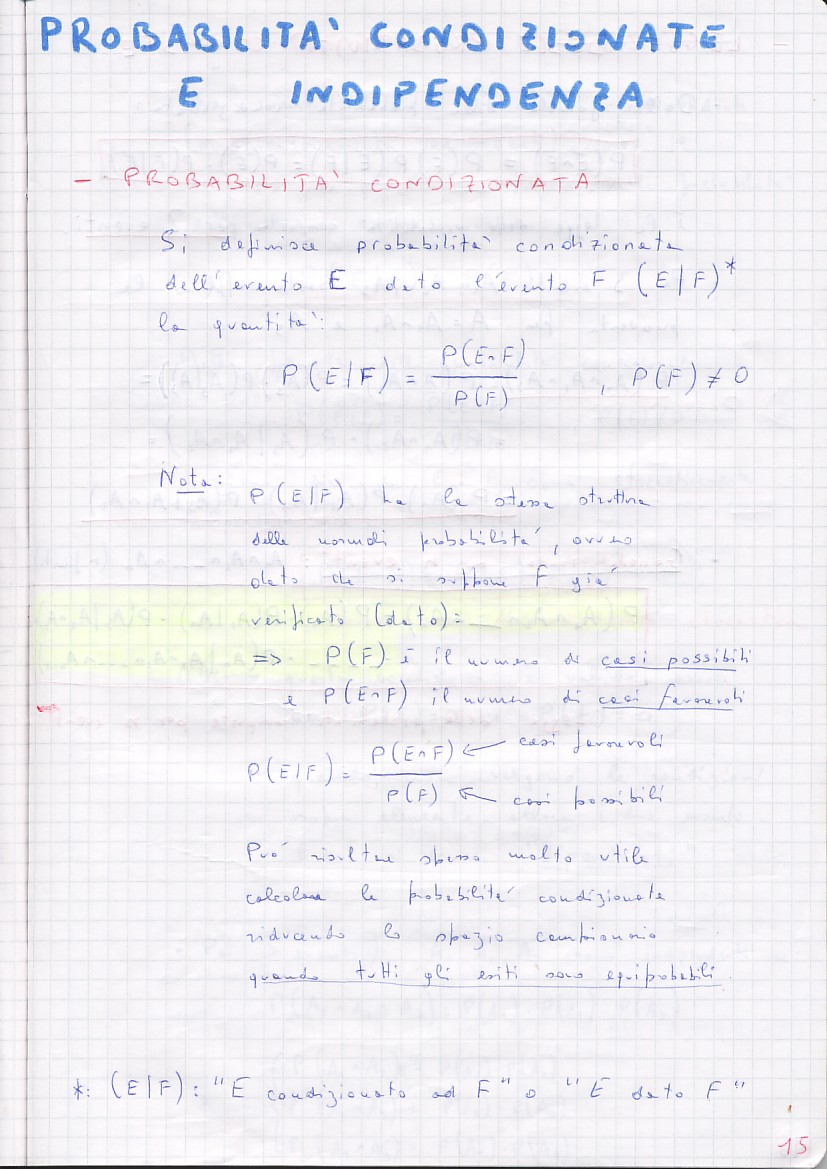 PROBABILITA' CONDIZIONATE
E INDIPENDENZA
- PROBABILITA' CONDIZIONATA
Si definisce probabilita' condizionata
dell'evento E dato l'evento F (E|F)*
la quantita':
P(E|F) = P(E∩F) / P(F) , P(F) ≠ 0
Nota:
P(E|F) ha la stessa struttura
delle normali probabilita', ovvero
dato che si suppone F gia'
verificato (dato):
=> P(F) è il numero di casi possibili
e P(E∩F) il numero di casi favorevoli
P(E|F) = P(E∩F) ← casi favorevoli
P(F) ← casi possibili
Puo' risultare spesso molto utile
calcolare le probabilita' condizionate
riducendo lo spazio campionario
quando tutti gli esiti sono equiprobabili
*: (E|F): "E condizionato ad F" o "E dato F"
15